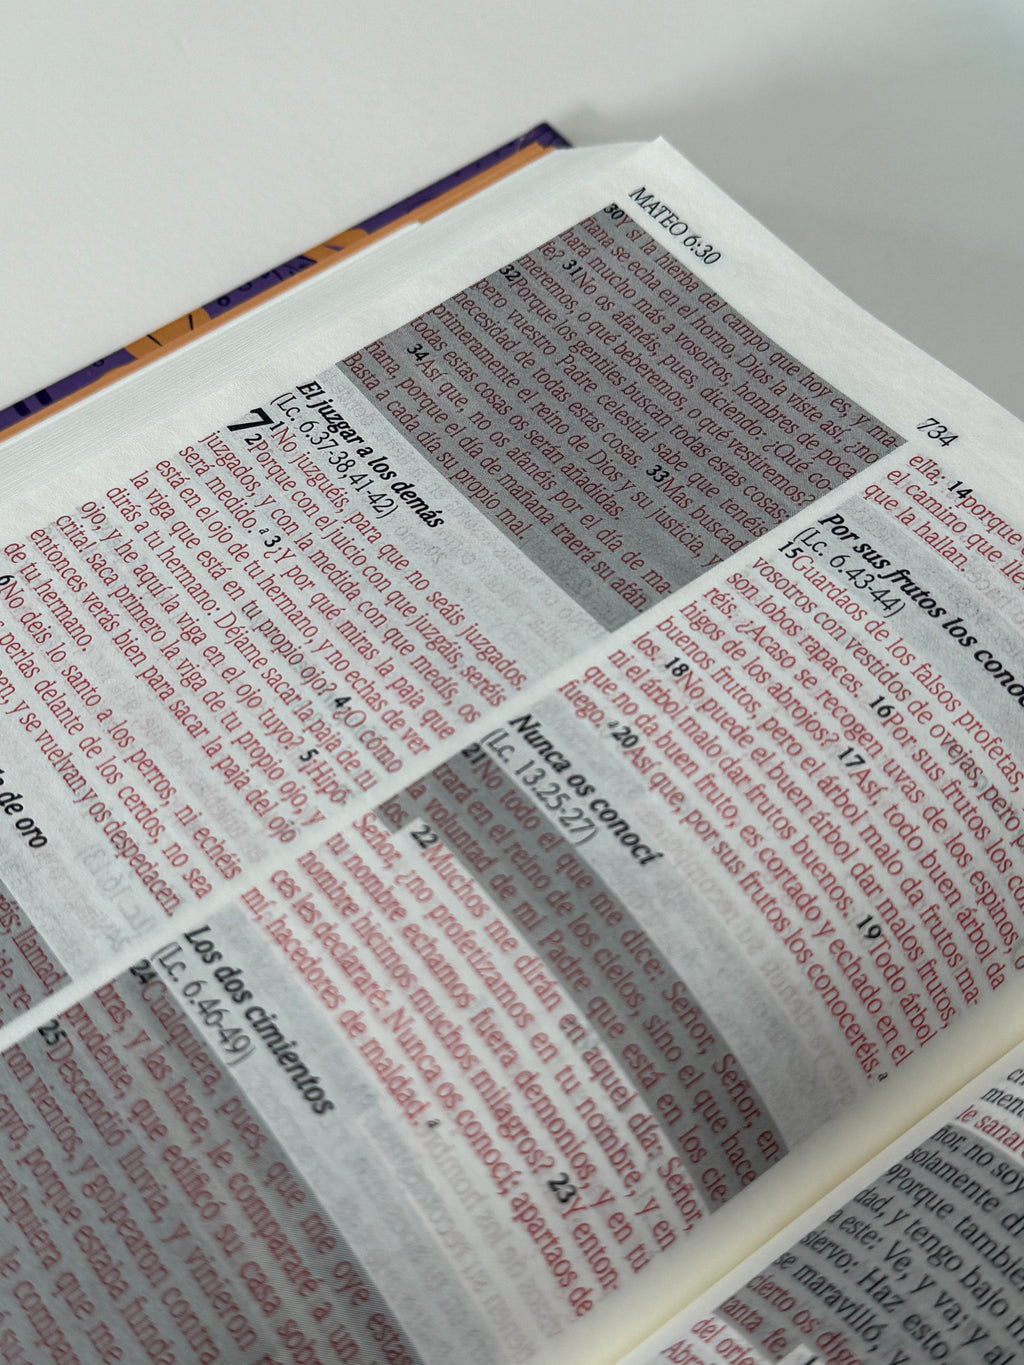 MATEO 6:30
734
30Y si la hierba del campo que hoy es, y ma-
ñana se echa en el horno, Dios la viste así, ¿no
hará mucho más a vosotros, hombres de poca
fe? 31No os afanéis, pues, diciendo: ¿Qué co-
meremos, o qué beberemos, o qué vestiremos?
32Porque los gentiles buscan todas estas cosas;
pero vuestro Padre celestial sabe que tenéis
necesidad de todas estas cosas. 33Mas buscad
primeramente el reino de Dios y su justicia, y
todas estas cosas os serán añadidas.
34Así que, no os afanéis por el día de ma-
ñana, porque el día de mañana traerá su afán.
Basta a cada día su propio mal.
El juzgar a los demás
(Lc. 6.37-38,41-42)
7 1No juzguéis, para que no seáis juzgados.
2Porque con el juicio con que juzgáis, seréis
juzgados, y con la medida con que medís, os
será medido. a 3¿Y por qué miras la paja que
está en el ojo de tu hermano, y no echas de ver
la viga que está en tu propio ojo? 4¿O cómo
dirás a tu hermano: Déjame sacar la paja de tu
ojo, y he aquí la viga en el ojo tuyo? 5¡Hipó-
crita! saca primero la viga de tu propio ojo, y
entonces verás bien para sacar la paja del ojo
de tu hermano.
6No deis lo santo a los perros, ni echéis
perlas delante de los cerdos, no sea
y se vuelvan y os despedacen.
de oro
llamad,
ella; 14porque
el camino que lle
que la hallan.
Por sus frutos los cono
(Lc. 6.43-44)
15Guardaos de los falsos profetas,
vosotros con vestidos de ovejas, pero
son lobos rapaces. 16Por sus frutos los co
réis. ¿Acaso se recogen uvas de los espinos,
higos de los abrojos? 17Así, todo buen árbol da
buenos frutos, pero el árbol malo da frutos ma-
los. 18No puede el buen árbol dar malos frutos,
ni el árbol malo dar frutos buenos. 19Todo árbol
que no da buen fruto, es cortado y echado en el
fuego. a 20Así que, por sus frutos los conoceréis. a
Nunca os conocí
(Lc. 13.25-27)
21No todo el que me dice: Señor, Señor, en-
trará en el reino de los cielos, sino el que hace
la voluntad de mi Padre que está en los cie-
los. 22Muchos me dirán en aquel día: Señor,
Señor, ¿no profetizamos en tu nombre, y en
tu nombre echamos fuera demonios, y en tu
nombre hicimos muchos milagros? 23Y enton-
ces les declararé: Nunca os conocí; apartaos de
mí, hacedores de maldad. a
Los dos cimientos
(Lc. 6.46-49)
24Cualquiera, pues, que me oye estas
bras, y las hace, le compararé a un
prudente, que edificó su casa sobre
25Descendió lluvia, y vinieron
ron vientos, y golpearon contra
cayó, porque estaba funda
alquiera que me
le compara
ment
le sanar
ñor, no soy
solamente di
9Porque también
dad, y tengo bajo m
a este: Ve, y va; y al
siervo: Haz esto
se maravilló, y
cierto os digo
anta fe.
del orie
Abra